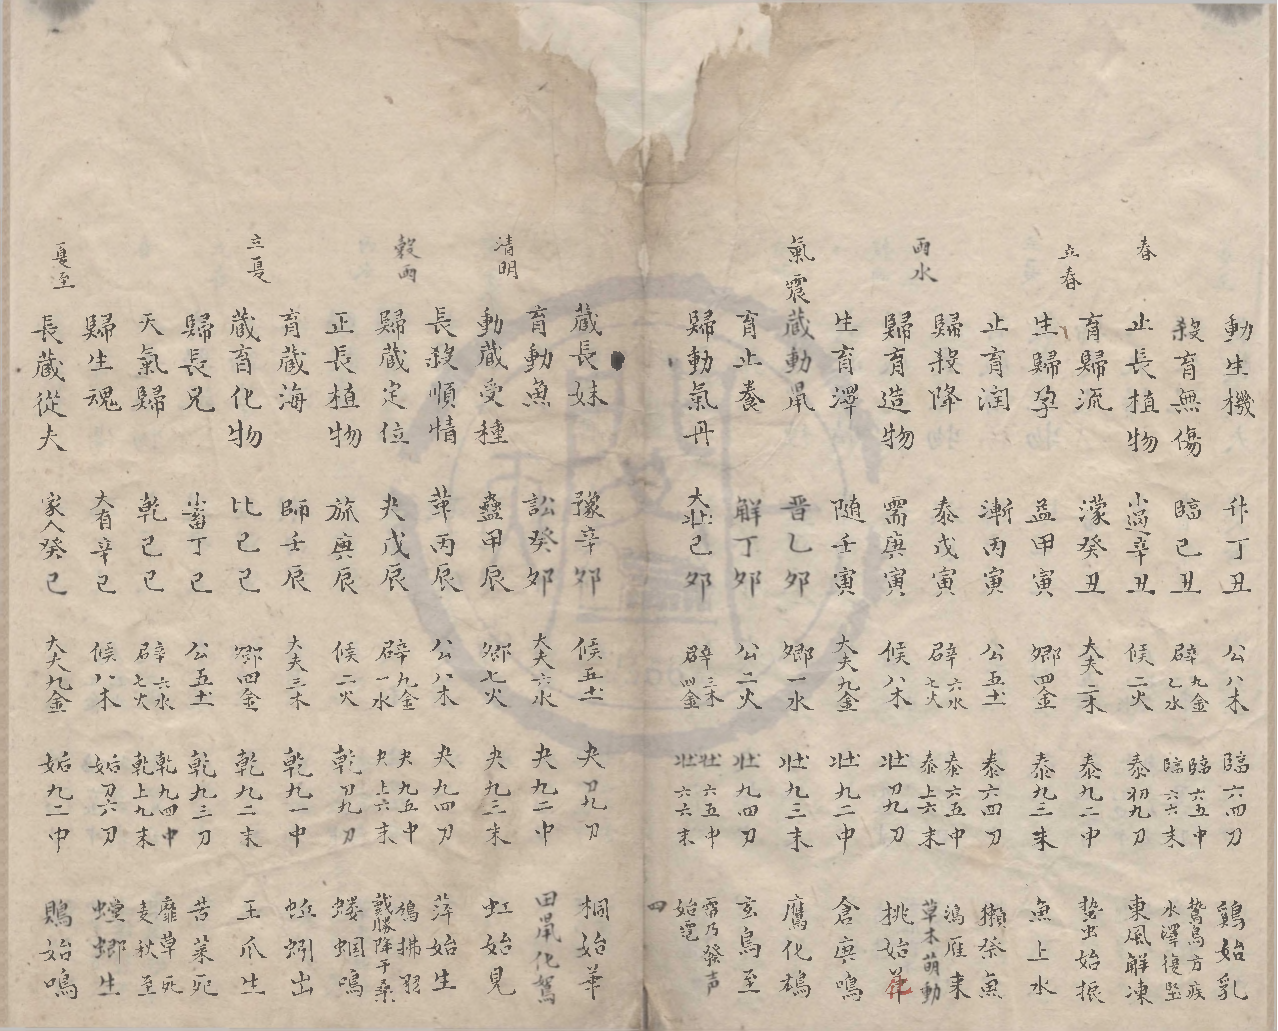 動生機 升丁丑 公八木 臨六四刀 鷄始乳
殺育無傷 臨己丑 辟九金乙水 臨六五中臨六六末 鷙鳥方疾水澤復堅
春
止長植物 小過辛丑 候二火 泰初九刀 東風解凍
立春
育歸流 濛癸丑 大夫三木 泰九二中 蟄虫始振
生歸孕 益甲寅 鄉四金 泰九三末 魚上水
止育润 漸丙寅 公五土 泰六四刀 獺祭魚
歸殺降 泰戊寅 辟六水七火 泰六五中泰上六末 鴻雁来草木萌動
雨水
歸育造物 需庚寅 候八木 壮刀九刀 桃始花
生育澤 随壬寅 大夫九金 壮九二中 倉庚鳴
氣震
蔵動鼠 晋乙夘 鄉一水 壮九三末 鷹化鳩
育止養 解丁夘 公二火 壮九四刀 玄鳥至
歸動氣丹 大壮己夘 辟三木四金 壮六五中壮六六末 雷乃發声始電
四
蔵長妹 豫辛夘 候五土 夬刀九刀 桐始華
育動魚 訟癸夘 大夫六水 夬九二中 田鼠化駕
清明
動蔵受種 蠱甲辰 鄉七火 夬九三末 虹始見
長殺順情 革丙辰 公八木 夬九四刀 萍始生
穀雨
歸蔵定位 夬戊辰 辟九金一水 夬九五中夬上六末 鳩拂羽戴勝降于桑
正長植物 旅庚辰 候二火 乾刀九刀 螻蟈鳴
育蔵海 師壬辰 大夫三木 乾九一中 蚯蚓出
立夏
蔵育化物 比己巳 鄉四金 乾九二末 王瓜生
歸長兄 小畜丁巳 公五土 乾九三刀 苦菜死
天氣歸 乾己巳 辟六水七火 乾九四中乾上九末 靡草死麦秋至
歸生魂 大有辛巳 候八木 姤刀六刀 螳螂生
夏至
長蔵從夫 家人癸巳 大夫九金 姤九二中 鵙始鳴